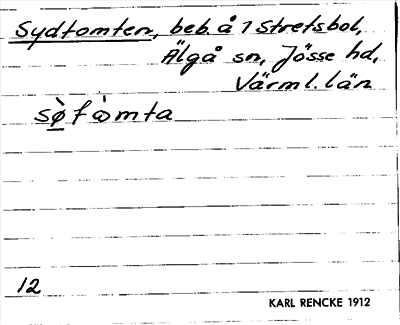 Sydtomten, beb. å 1 Stretsbol,
Älgå sn, Jösse hd,
Värml. län
sø̀ftòmta
12
KARL RENCKE 1912